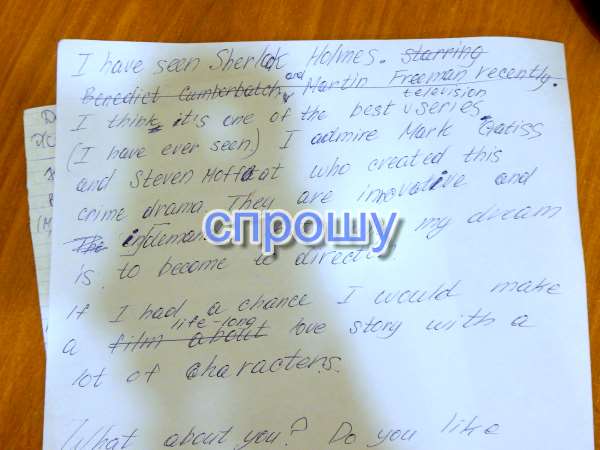 I have seen Sherlock Holmes. starring
Benedict Cumberbatch and Martin Freeman recently.
I think it is one of the best television series
(I have ever seen) I admire Mark Gatiss
and Steven Moffat who created this
crime drama. They are innovative and
The in deman my dream
is to become to director
If I had a chance I would make
a film about life-long love story with a
lot of characters.
What about you? Do you like
спрошу